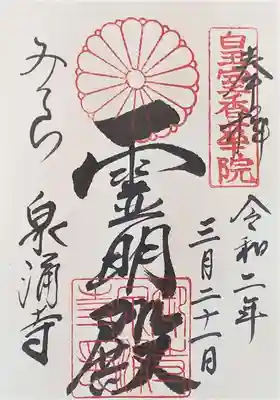 奉拝
皇室香華院
令和二年
三月二十一日
霊明殿
みてら
泉涌寺